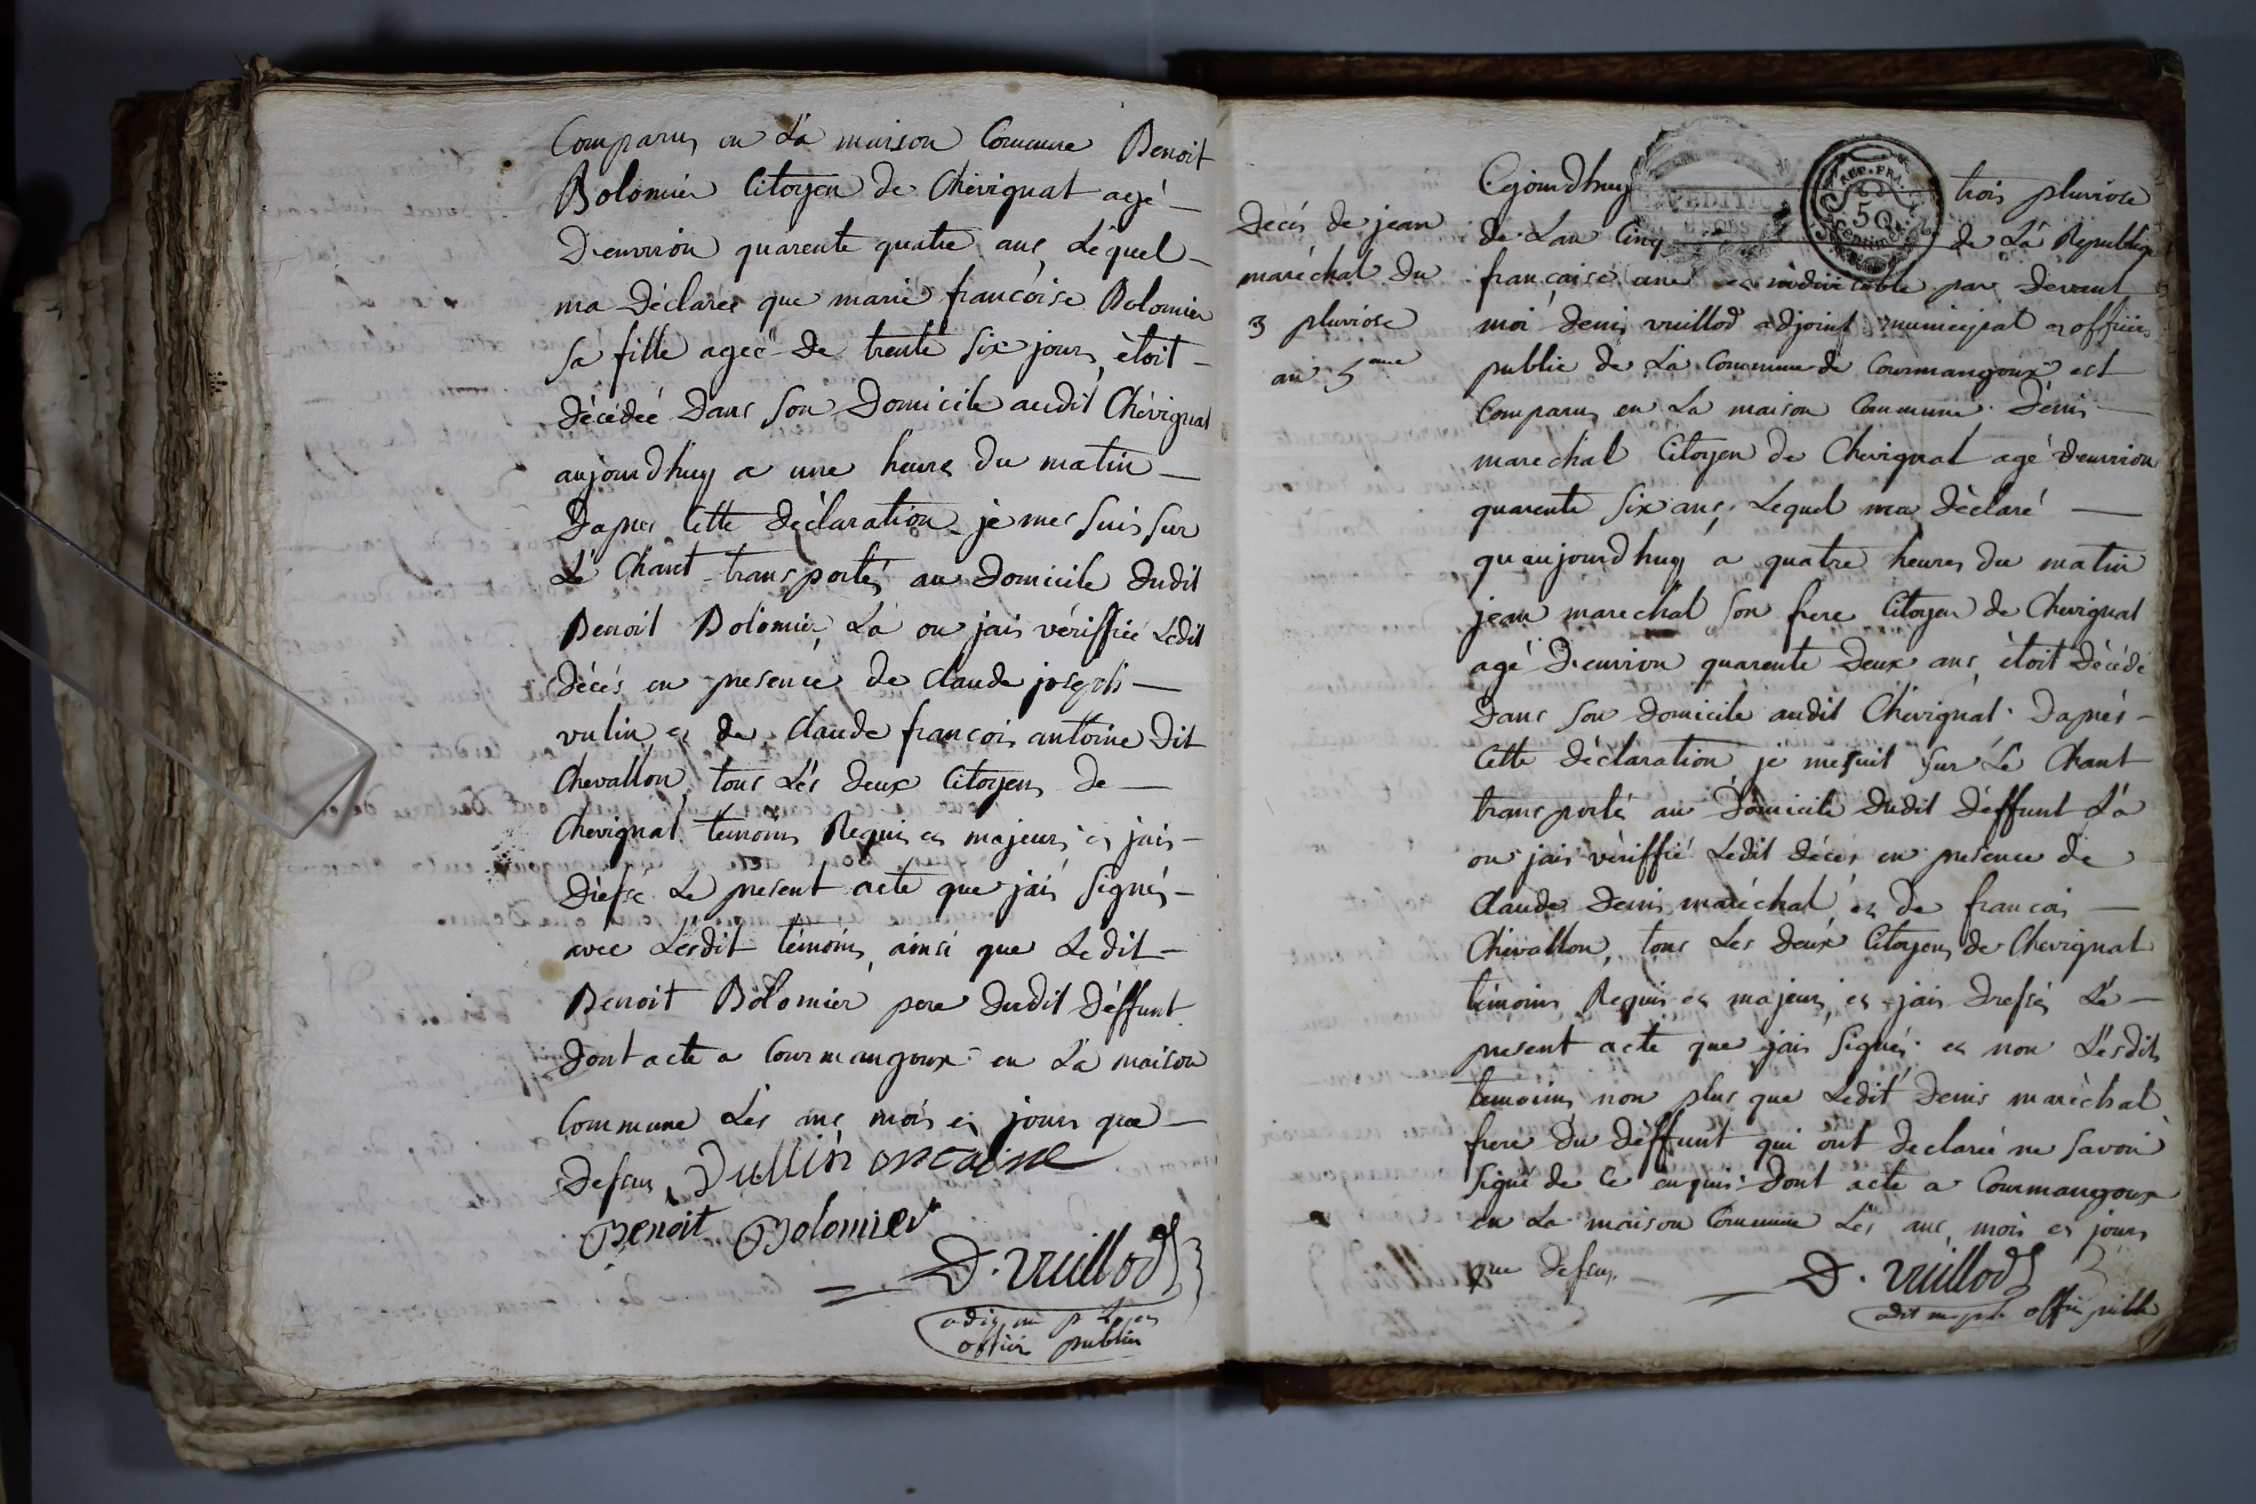 Comparus en La maison Commune Benoit
Bolomier Citoyen de Chevignat agé
D'environ quarente quatre ans, Lequel
ma Déclarée que marie francoise Bolomier
sa fille ageé de trente six jours, étoit
décédeé Dans son Domicile audit Chévignat
aujourdhuy a une heure Du matin
Dapres Cette déclaration je mes suis sur
Le Chant transportés au Domicile dudit
Benoit Bolomier, La ou jais vériffiée Ledit
décés en presence de claude joseph
vulin et de claude francois antoine dit
Chevallon, tous Lés deux Citoyens de
Chevignat temoins Requis et majeurs et jais
Dréssé Le present acte que jais signés
avec Lésdit témoins, ainsi que Ledit
Benoit Bolomier pere dudit Déffunt
dont acte a Courmangoux en La maison
Commune Lés ans mois et jours que
dessus Vullin antoine
Benoit Bolomier
D. vuillod
officier public
décés de jean
maréchal du
3 pluviose
an 5eme
REP. FRA.
50
Centimes
Cejourdhuy trois pluviose
de Lan Cinq de La Republique
francaise une et indivisible par devant
moi denis vuillod adjoint municipal et officier
public de La Commune de Courmangoux est
Comparus en La maison Commune Dénis
marechal Citoyen de Chevignat agé denviron
quarente six ans, Lequel ma déclaré
quaujourdhuy a quatre heures du matin
jean marechal son frere Citoyen de Chevignat
agé D'environ quarente deux ans, étoit décédé
dans son domicile audit Chévignat. Daprés
Cette déclaration je me suit sur Le Chant
transportés au Domicile dudit déffunt Lá
ou jais vériffié Ledit décés en presence de
claude denis maréchal et de francois
Chevallon, tous Les deux Citoyens de Chevignat
témoins Requis et majeurs, et jais dressés Le
present acte que jais signés et non Lésdits
temoins non plus que Ledit denis maréchal
frere du déffunt qui ont declarée ne savoir
signé de Ce enquis dont acte a Courmangoux
en La maison Commune Lés ans, mois et jours
que dessus
D. vuillod